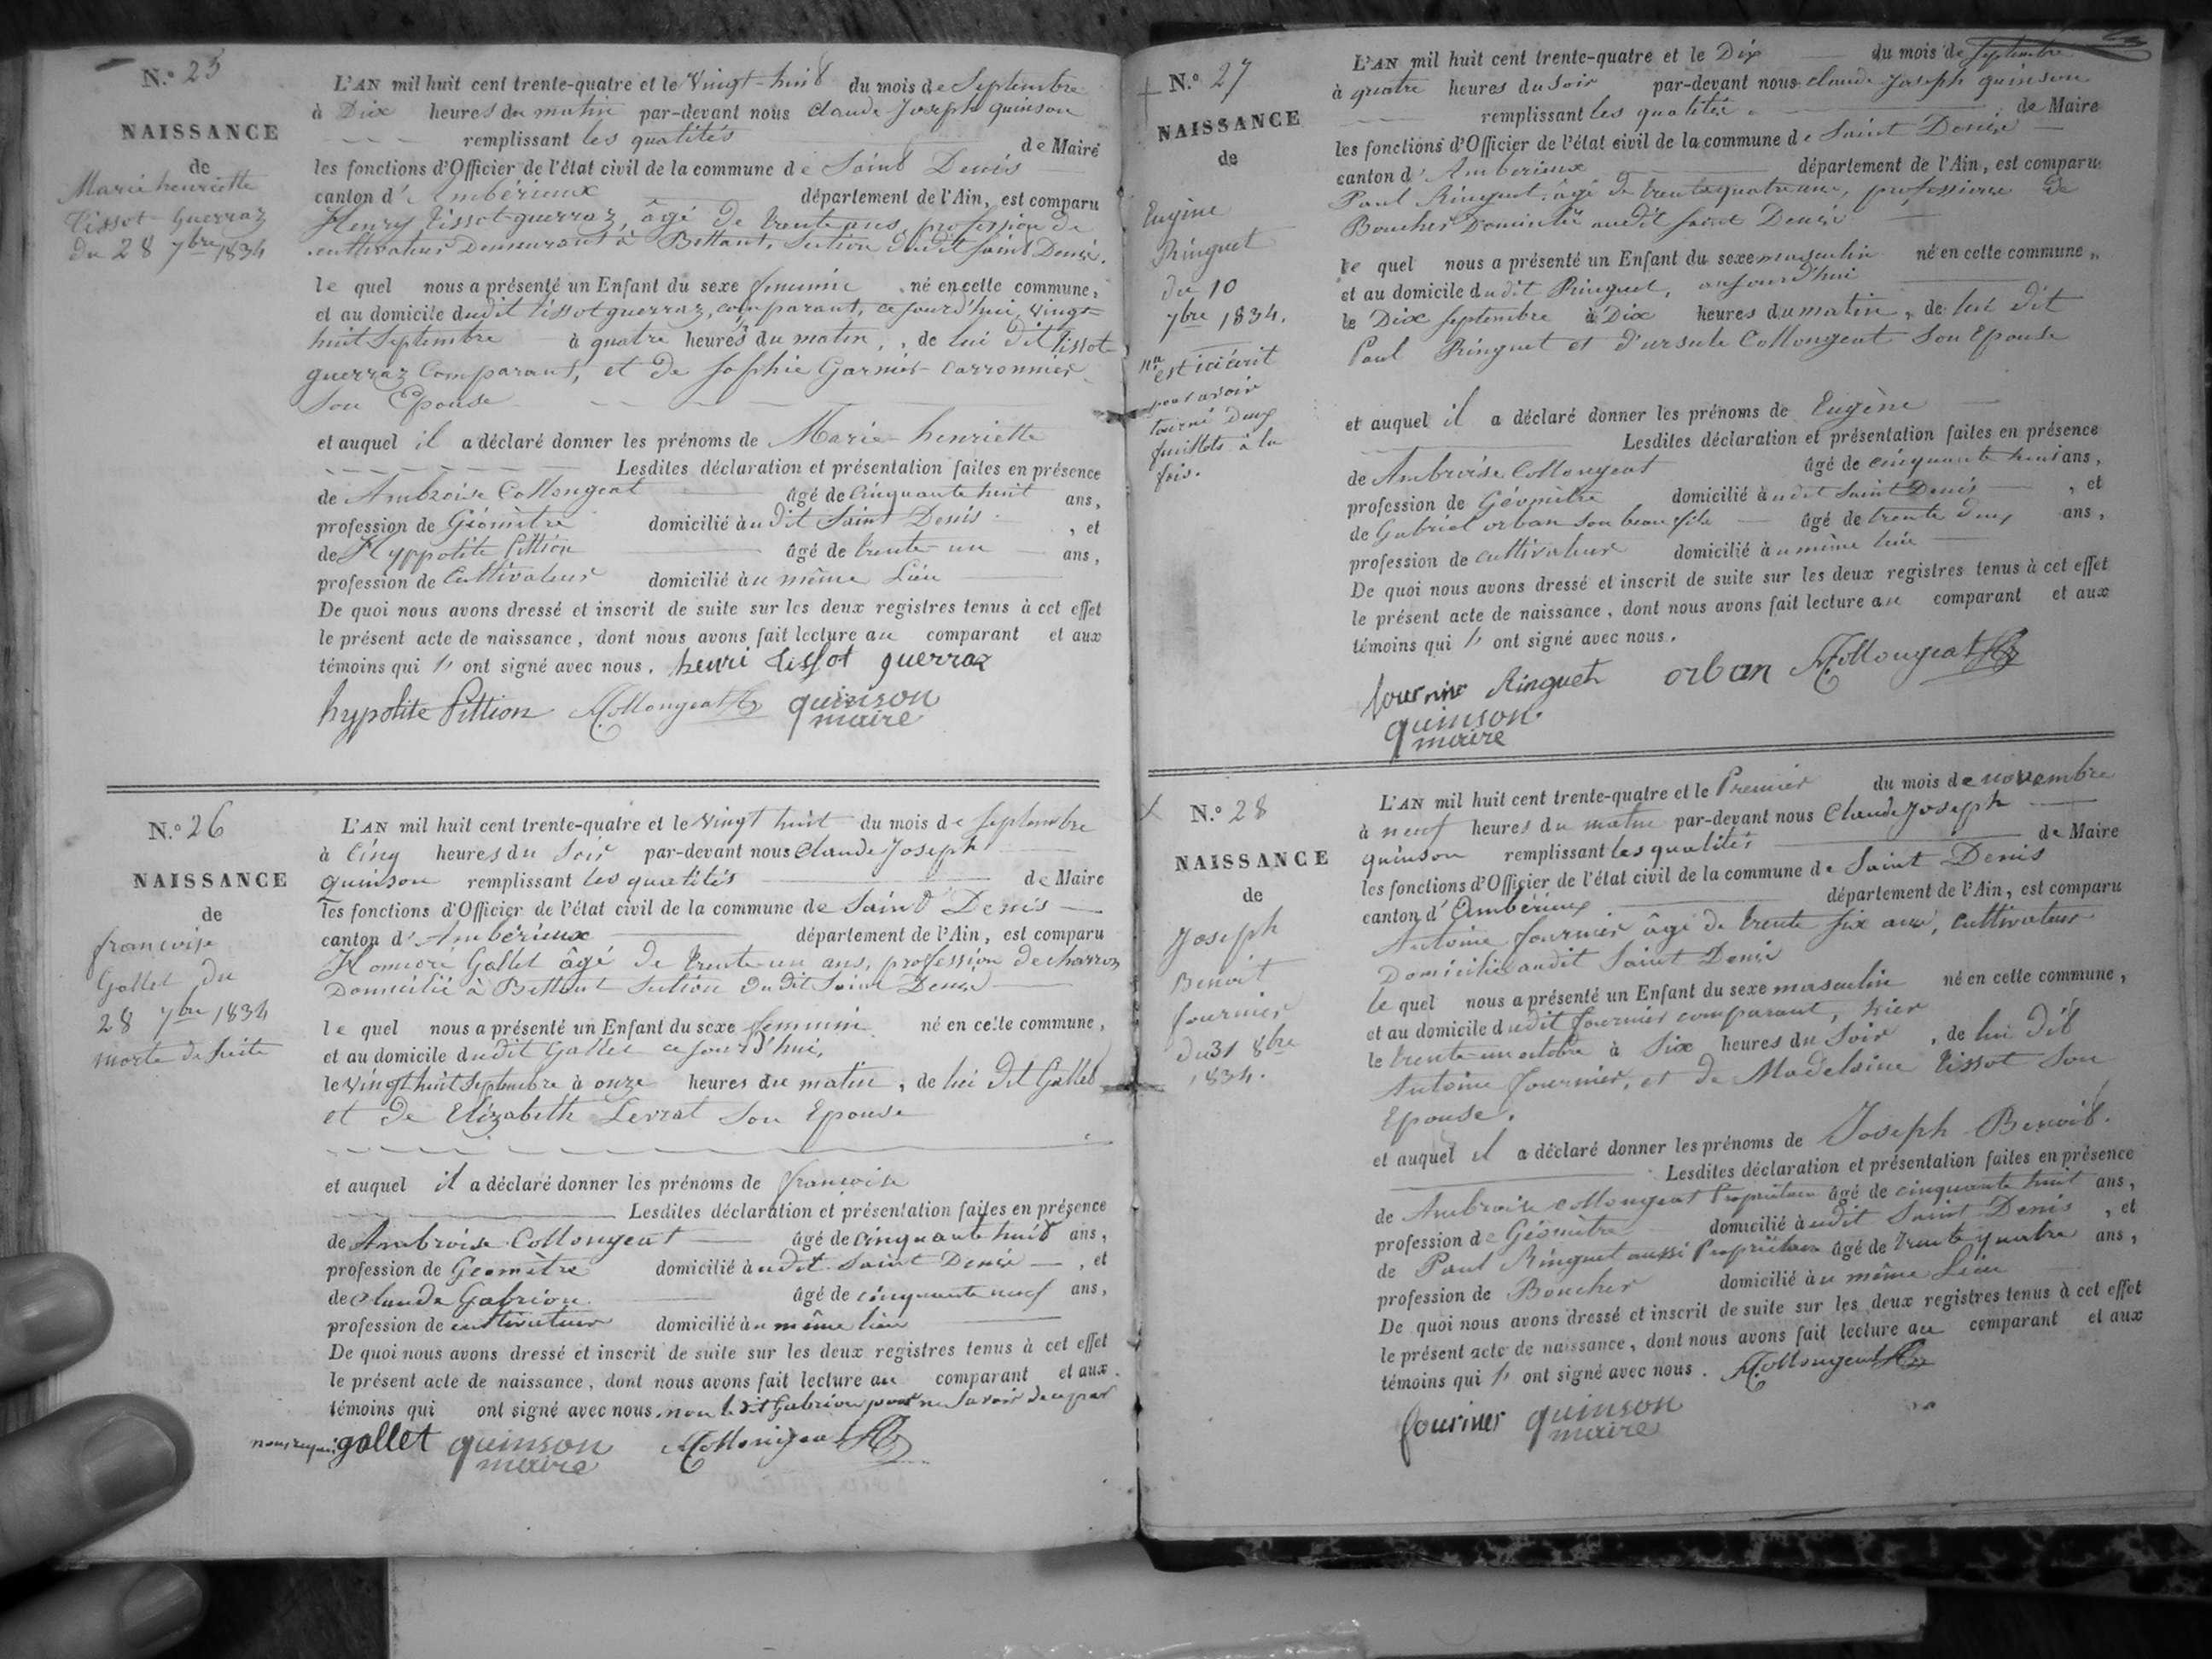 N.° 25
NAISSANCE
de
Marie henriette
Tissot Guerraz
du 28 7bre 1834
L'AN mil huit cent trente-quatre et le Vingt-huit du mois de Septembre
à Dix heures du matin par-devant nous Claude Joseph quinson
remplissant les qualités de Maire
les fonctions d'Officier de l'état civil de la commune de Saint Denis
canton d'Ambérieux département de l'Ain, est comparu
Henry Tissot-guerraz, âgé de trente ans, profession de
cultivateur Demeurant à Bettant, Section dudit Saint Denis.
le quel nous a présenté un Enfant du sexe feminin né en cette commune,
et au domicile dudit tissot guerraz, comparant, ce jourd'hui, Vingt-
huit Septembre à quatre heures du matin, de lui dit tissot
guerraz Comparant, et de Sophie Garnier Carronnier
Son Epouse
et auquel il a déclaré donner les prénoms de Marie-henriette
Lesdites déclaration et présentation faites en présence
de Ambroise Collongeat âgé de Cinquante huit ans,
profession de Géomètre domicilié audit Saint Denis, et
de Hyppolite Pittion âgé de trente-un ans,
profession de Cultivateur domicilié au même Lieu
De quoi nous avons dressé et inscrit de suite sur les deux registres tenus à cet effet
le présent acte de naissance, dont nous avons fait lecture au comparant et aux
témoins qui ont signé avec nous. henri tissot guerraz
hypolite Pittion Collongeat quinson
maire
N.° 26
NAISSANCE
de
francoise
Gallet du
28 7bre 1834
morte de suite
L'AN mil huit cent trente-quatre et le Vingt huit du mois de Septembre
à Cinq heures du Soir par-devant nous Claude Joseph
quinson remplissant les qualités de Maire
les fonctions d'Officier de l'état civil de la commune de Saint Denis
canton d'Ambérieux département de l'Ain, est comparu
Gallet âgé de trente un ans, profession de charron
Domicilié à Bettant Section dudit Saint Denis
le quel nous a présenté un Enfant du sexe feminin né en cette commune,
et au domicile dudit Gallet ce jourd'hui,
le Vingt huit Septembre à onze heures du matin, de lui dit Gallet
et de Elizabeth Levrat Son Epouse
et auquel il a déclaré donner les prénoms de francoise
Lesdites déclaration et présentation faites en présence
de Ambroise Collongeat âgé de cinquante huit ans,
profession de Geomètre domicilié audit Saint Denis, et
de Claude Gabrion âgé de cinquante neuf ans,
profession de cultivateur domicilié au même lieu
De quoi nous avons dressé et inscrit de suite sur les deux registres tenus à cet effet
le présent acte de naissance, dont nous avons fait lecture au comparant et aux
témoins qui ont signé avec nous, non le dit Gabrion pour ne Savoir de ce par
nous requis gallet quinson Collongeat
maire
N.° 27
NAISSANCE
de
Eugène
Ringuet
du 10
7bre 1834.
est ici écrit
pour avoir
tourné deux
feuillets à la
fois.
L'AN mil huit cent trente-quatre et le Dix du mois de Septembre
à quatre heures du Soir par-devant nous claude joseph quinson
remplissant les qualités de Maire
les fonctions d'Officier de l'état civil de la commune de Saint Denis
canton d'Ambérieux département de l'Ain, est comparu
Paul Ringuet, âgé de trente quatre ans, profession de
Boucher Domicilié audit Saint Denis
le quel nous a présenté un Enfant du sexe masculin né en cette commune,
et au domicile dudit Ringuet, aujourd'hui
le Dix Septembre à Dix heures du matin, de lui dit
Paul Ringuet et d'ursule Collongeat Son Epouse
et auquel il a déclaré donner les prénoms de Eugène
Lesdites déclaration et présentation faites en présence
de Ambroise Collongeat âgé de cinquante huit ans,
profession de Géomètre domicilié audit Saint Denis, et
de Gabriel orban son beau fils âgé de trente deux ans,
profession de cultivateur domicilié au même lieu
De quoi nous avons dressé et inscrit de suite sur les deux registres tenus à cet effet
le présent acte de naissance, dont nous avons fait lecture au comparant et aux
témoins qui ont signé avec nous.
Ringuet orban Collongeat
quinson
maire
N.° 28
NAISSANCE
de
Joseph
Benoit
fournier
du 31 8bre
1834.
L'AN mil huit cent trente-quatre et le Premier du mois de novembre
à neuf heures du matin par-devant nous Claude Joseph
quinson remplissant les qualités de Maire
les fonctions d'Officier de l'état civil de la commune de Saint Denis
canton d'Ambérieux département de l'Ain, est comparu
Antoine fournier âgé de trente six ans, cultivateur
Domicilié audit Saint Denis
le quel nous a présenté un Enfant du sexe masculin né en cette commune,
et au domicile dudit fournier comparant, hier
le trente un octobre à Six heures du Soir, de lui dit
Antoine fournier, et de Madelaine tissot Son
Epouse.
et auquel il a déclaré donner les prénoms de Joseph Benoit.
Lesdites déclaration et présentation faites en présence
de Ambroise Collongeat Propriétaire âgé de cinquante huit ans,
profession de Géomètre domicilié audit Saint Denis, et
de Paul Ringuet aussi Propriétaire âgé de trente quatre ans,
profession de Boucher domicilié au même Lieu
De quoi nous avons dressé et inscrit de suite sur les deux registres tenus à cet effet
le présent acte de naissance, dont nous avons fait lecture au comparant et aux
témoins qui ont signé avec nous. Collongeat
fournier quinson
maire